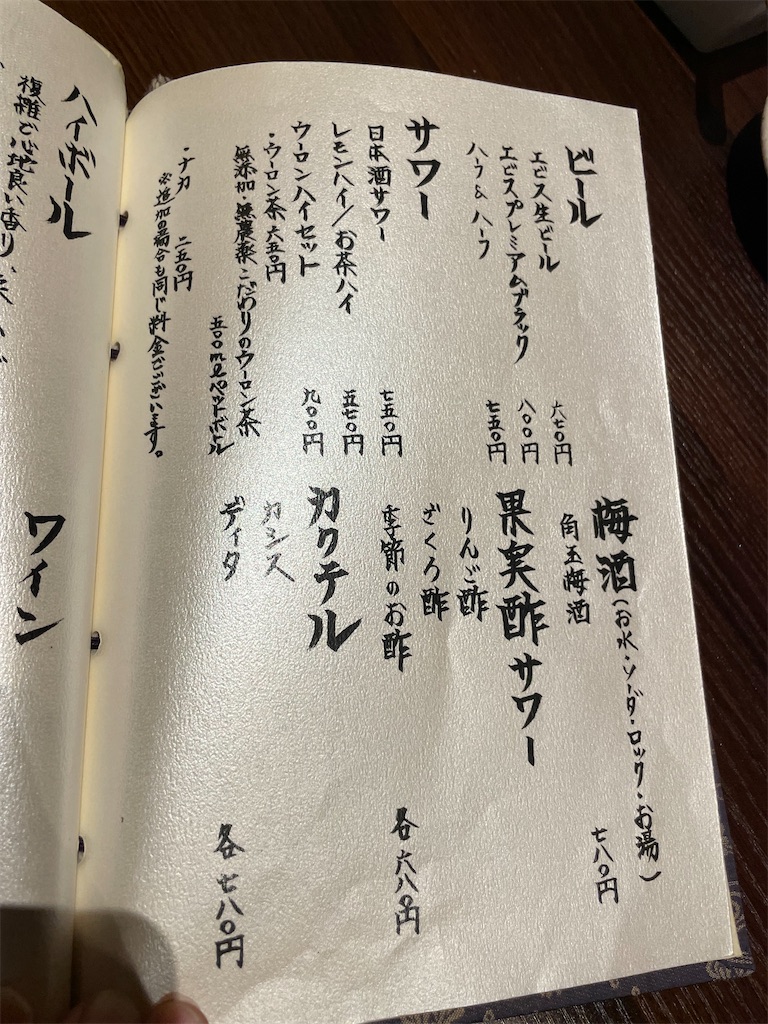 ビール
エビス生ビール 六七〇円
エビスプレミアムブラック 八〇〇円
ハーフ&ハーフ 七五〇円
サワー
日本酒サワー 七五〇円
レモンハイ/お茶ハイ 五七〇円
ウーロンハイセット 九〇〇円
・ウーロン茶 六五〇円
無添加・無農薬こだわりのウーロン茶
五〇〇mlペットボトル
・ナカ 二五〇円
※追加の場合も同じ料金でございます。
梅酒(お水・ソーダ・ロック・お湯)
角玉梅酒 七八〇円
果実酢サワー
りんご酢
ざくろ酢
季節のお酢 各六八〇円
カクテル
カシス
ディタ 各七八〇円
ハイボール
複雑で心地良い香り、
ワイン